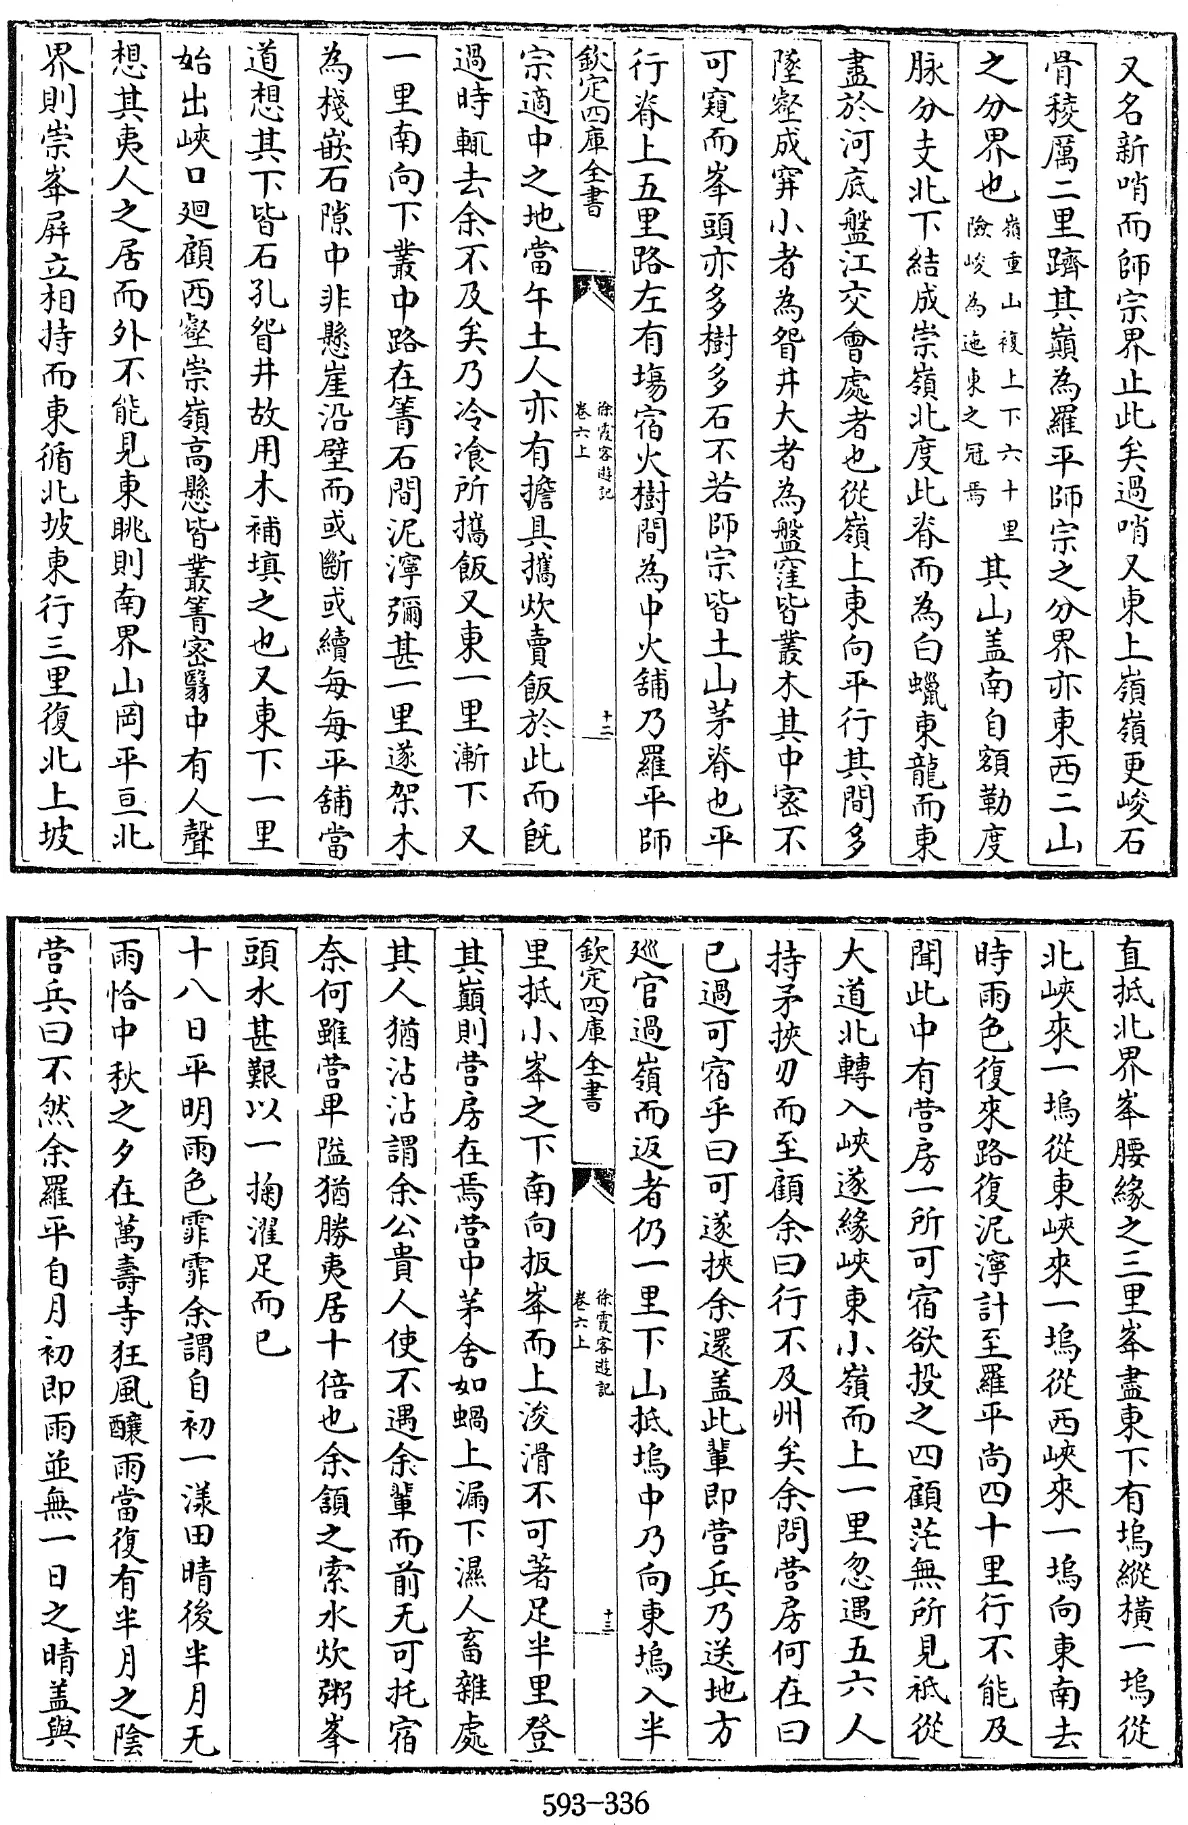 又名新哨而師宗界止此矣過哨又東上嶺嶺更峻石
骨稜厲二里躋其巔為羅平師宗之分界亦東西二山
之分界也嶺重山複上下六十里險峻為迤東之冠焉其山盖南自額勒度
脉分支北下結成崇嶺北度此脊而為白蠟東龍而東
盡於河底盤江交會處者也從嶺上東向平行其間多
墜壑成穽小者為眢井大者為盤窪皆叢木其中宻不
可窺而峯頭亦多樹多石不若師宗皆土山茅脊也平
行脊上五里路左有塲宿火樹間為中火舖乃羅平師
欽定四庫全書
徐霞客遊記
卷六上
十二
宗適中之地當午土人亦有擔具攜炊賣飯於此而旣
過時輒去余不及矣乃冷飡所攜飯又東一里漸下又
一里南向下叢中路在箐石間泥濘彌甚一里遂架木
為棧嵌石隙中非懸崖沿壁而或斷或續每每平舖當
道想其下皆石孔眢井故用木補填之也又東下一里
始出峽口廻顧西壑崇嶺高懸皆叢箐宻翳中有人聲
想其夷人之居而外不能見東眺則南界山岡平亘北
界則崇峯屏立相持而東循北坡東行三里復北上坡
直抵北界峯腰緣之三里峯盡東下有塢縱橫一塢從
北峽來一塢從東峽來一塢從西峽來一塢向東南去
時雨色復來路復泥濘計至羅平尚四十里行不能及
聞此中有營房一所可宿欲投之四顧茫無所見衹從
大道北轉入峽遂緣峽東小嶺而上一里忽遇五六人
持矛挾刃而至顧余曰行不及州矣余問營房何在曰
已過可宿乎曰可遂挾余還盖此輩即營兵乃送地方
廵官過嶺而返者仍一里下山抵塢中乃向東塢入半
欽定四庫全書
徐霞客遊記
卷六上
十三
里抵小峯之下南向扳峯而上浚滑不可著足半里登
其巔則營房在焉營中茅舍如蝸上漏下濕人畜雜處
其人猶沾沾謂余公貴人使不遇余輩而前无可托宿
奈何雖營卑隘猶勝夷居十倍也余頷之索水炊粥峯
頭水甚艱以一掬濯足而已
十八日平明雨色霏霏余謂自初一漾田晴後半月无
雨恰中秋之夕在萬壽寺狂風釀雨當復有半月之陰
營兵曰不然余羅平自月初即雨並無一日之晴盖與
593-336